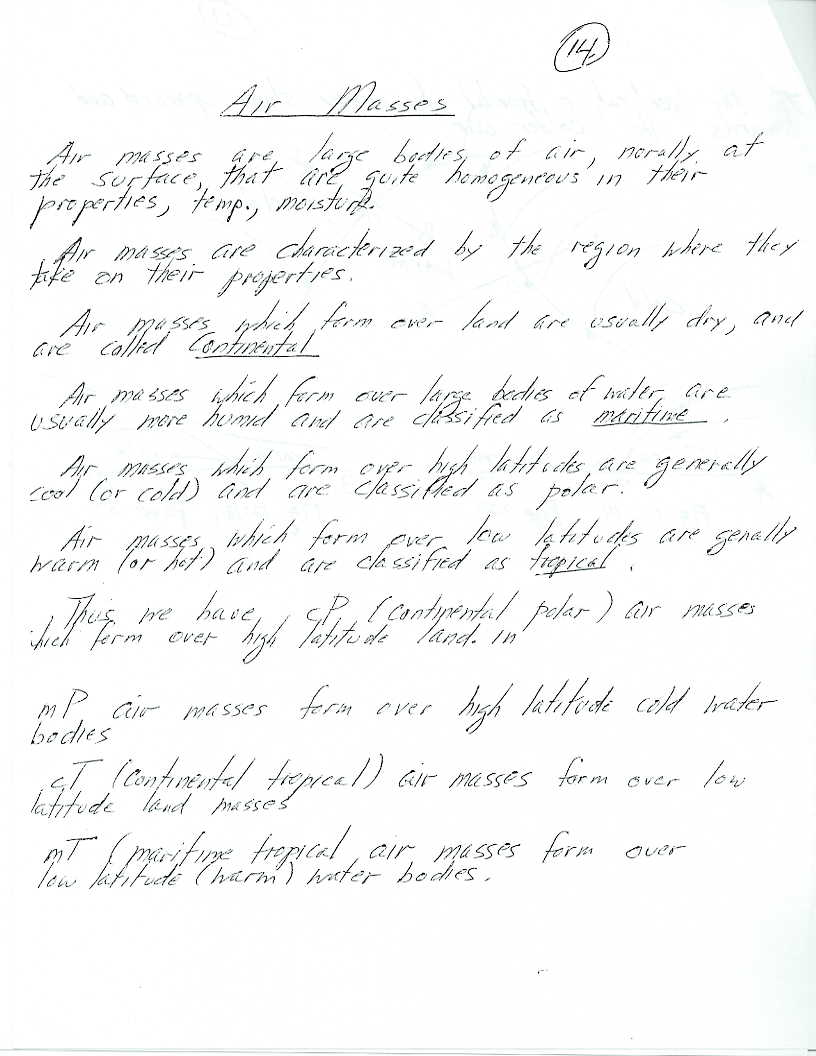 14.
Air Masses
Air masses are large bodies of air, norally at
the surface, that are quite homogeneous in their
properties, temp., moisture.
Air masses are characterized by the region where they
take on their properties.
Air masses which form over land are usually dry, and
are called Continental
Air masses which form over large bodies of water are
usually more humid and are classified as maritime.
Air masses which form over high latitudes are generally
cool (or cold) and are classified as polar.
Air masses which form over low latitudes are genally
warm (or hot) and are classified as tropical.
Thus we have cP (continental polar) air masses
which form over high latitude land. in
mP air masses form over high latitude cold water
bodies
cT (continental tropical) air masses form over low
latitude land masses
mT (maritime tropical air masses form over
low latitude (warm) water bodies.